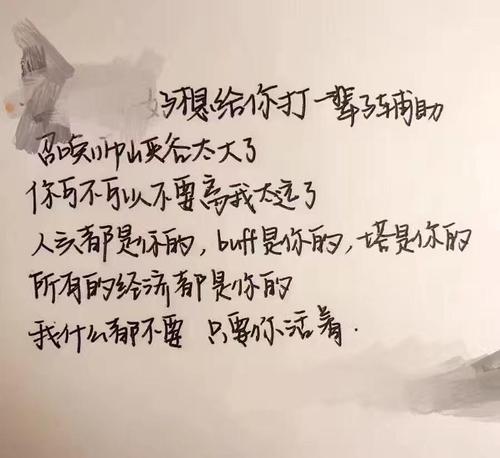 好想给你打一辈子辅助
召唤师峡谷太大了
你可不可以不要离我太远了
人头都是你的,buff是你的,塔是你的
所有的经济都是你的
我什么都不要 只要你活着.